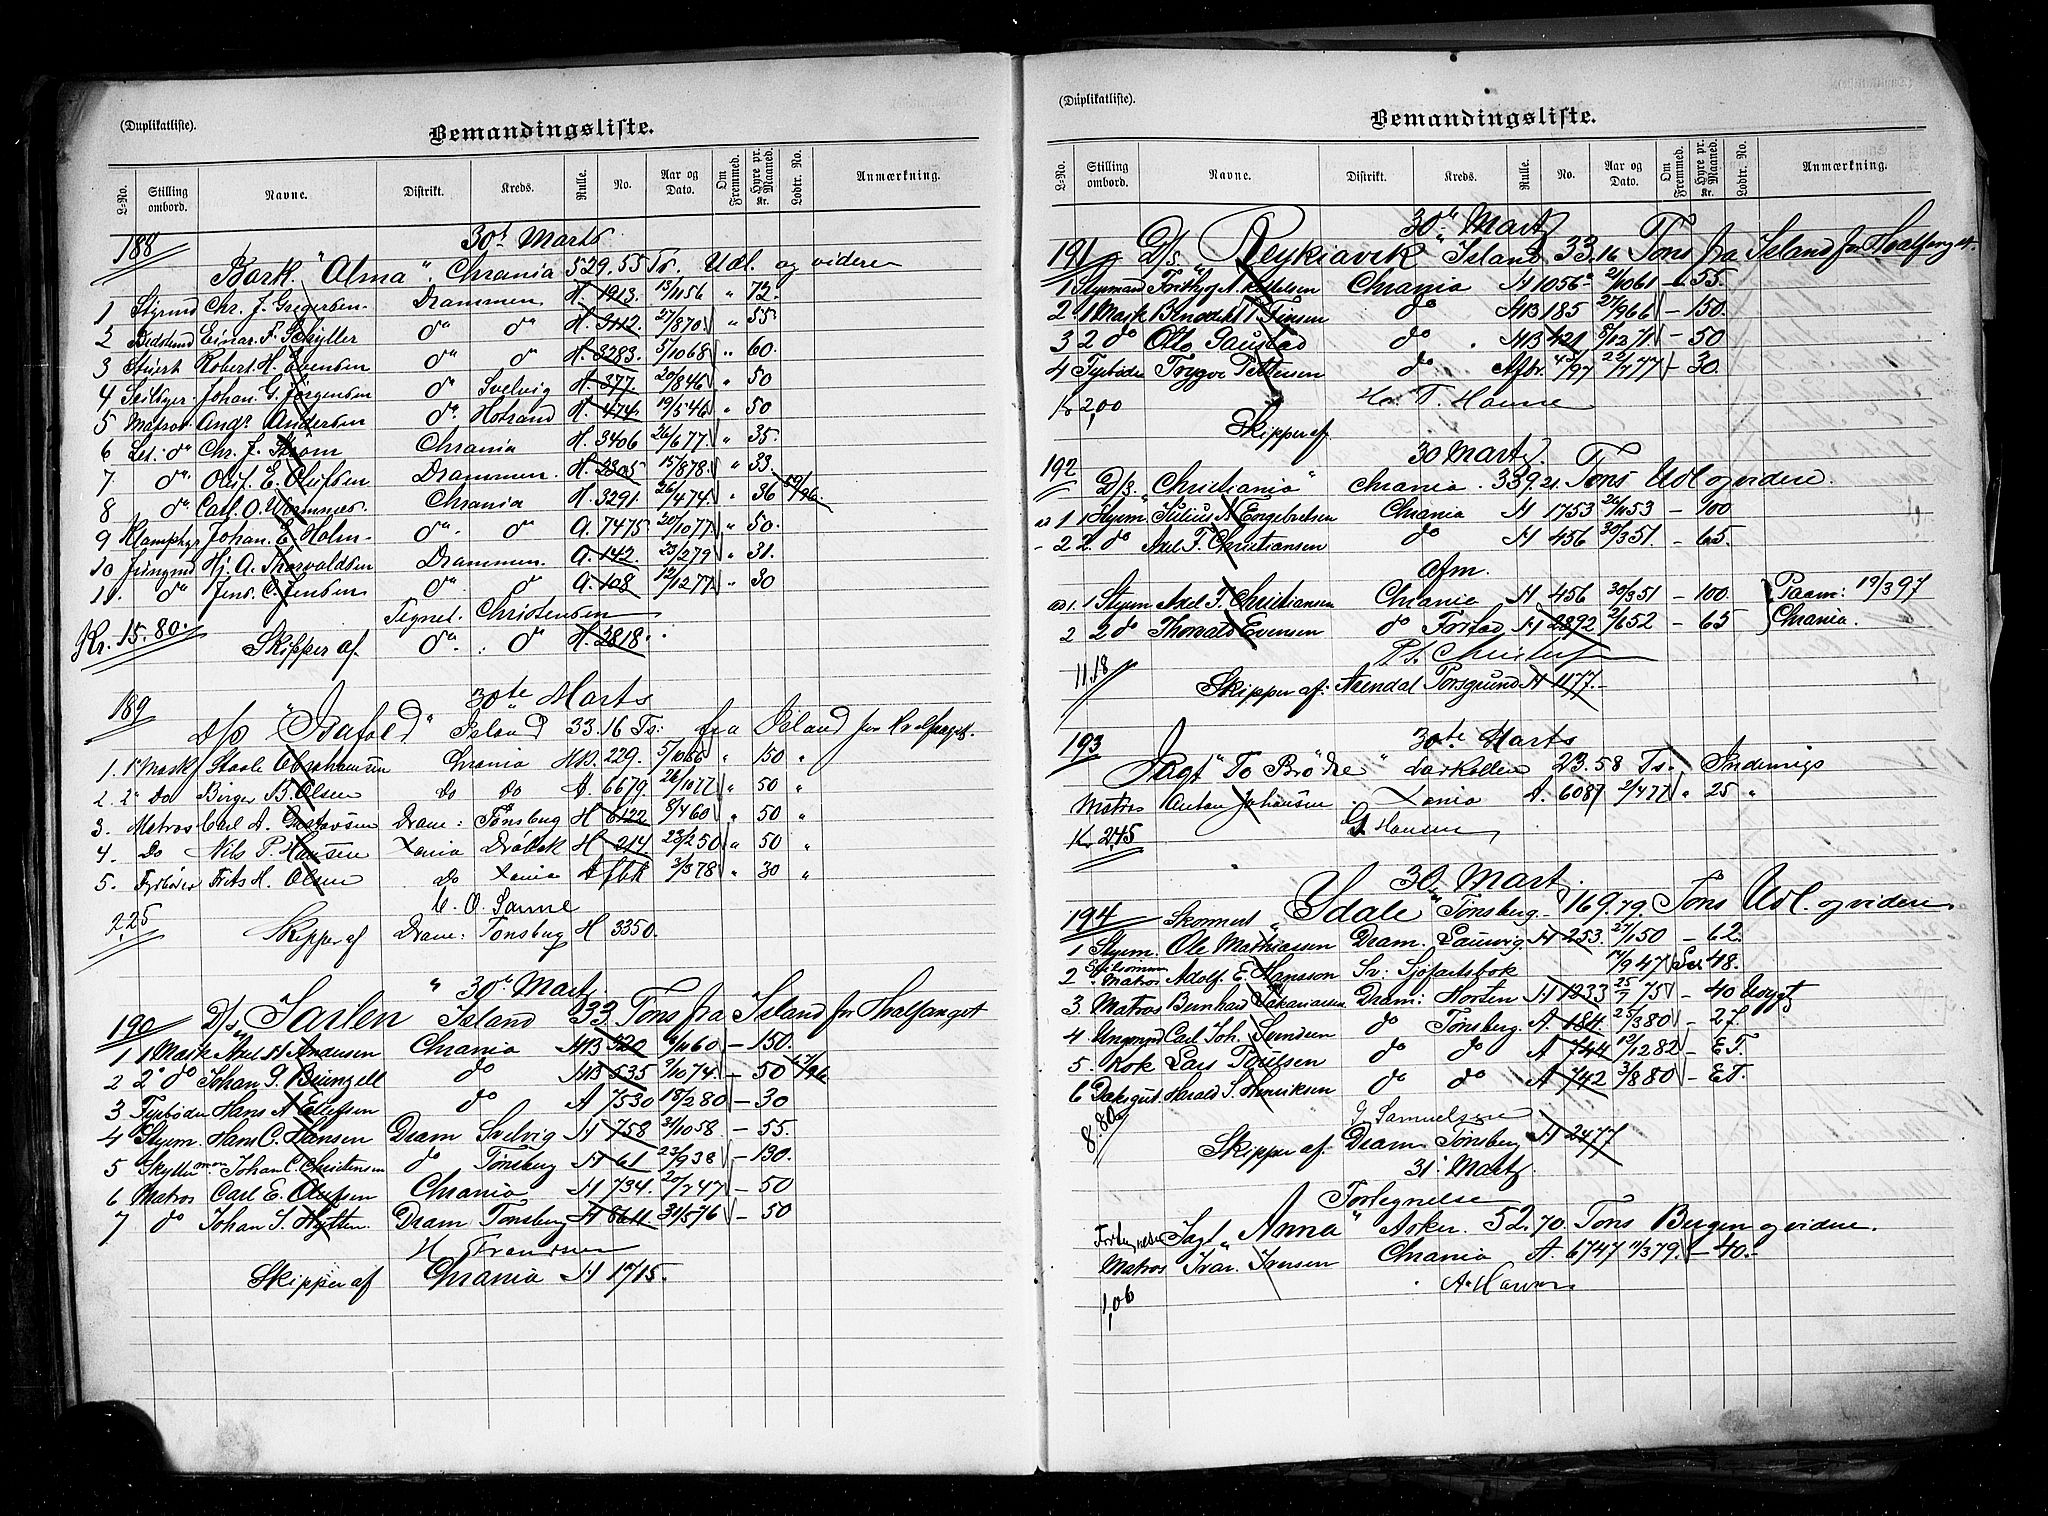 (Duplikatliste).
Bemandingsliste.
L-No. Stilling ombord. Navne. Distrikt. Kreds. Rulle. No. Aar og Dato. Om Fremmed. Hyre pr. Maaned. Kr. Lodtr. No. Anmærkning.
188 30t Marts
Bark "Alma", Chrania 529.55 Ts. Udl. og videre
1 Styrmd Chr. J. Gregersen Drammen H. 1913. 13/1156 " 72.
2 Bedstmd Einar. F. Schyller do do H. 3112. 27/870 " 55.
3 Stuert Robert H. Evensen do do H. 3283. 5/1068 " 60.
4 Seilsger Johan G. Jørgensen do Svelvig H. 377. 20/846 " 50
5 Matros Andersen do Holmestrand H. 474. 19/546 " 50
6 Let. do Chr. J. Strøm Chrania H. 3406 26/677 " 35.
7. do Oluf. E. Olufsen Drammen H. 2305 15/878. " 33.
8 do Carl. O. Wormnæs. Chrania H. 3291. 26/474. " 36
9 Johan. E. Holm do do A. 7475. 20/1077 " 50.
10 Jungmd Hj. A. Thorvaldsen Drammen. A. 142. 23/279 " 31.
11. do Jens. C. Jensen do do A. 108 12/1277 " 30
Tegnet. Christensen
Kr. 15.80. Skipper af. do do H. 2818.
189 30te Marts
D/s "Isafold" Island 33.16 Ts. fra Island for Hvalfanget.
1. 1 Mask Staale Abrahamsen Chrania HB. 229. 5/1066 " 150 "
2. 2" Do Birger B. Olsen Do Do A. 6679. 26/1077 " 50 "
3. Matros Carl A. Gustavsen Dram: Tønsbug H 6122 8/460 " 50 "
4. Do Nils P. Hansen Xania Drøbak H 214. 23/250 " 50 "
5. Fyrbøder Frits H. Olsen Do Xania Afbk 3/378 " 30 "
C. O. Sanne
2,25 Skipper af Dram: Tonsbug H 3350.
30t Marts
190 D/s "Jarlen" Island 33 Tons fra Island for Hvalfanget
1 1 Mask Axel H Andersen Chrania MB 320 6/1160 - 150.
2 2" do Johan G. do MB 535 2/1074. - 50
3 Fyrbøder Hans A Ellefsen do A 7530 18/280 - 30
4 Styrm. Hans C. Hansen Dram Svelvig H 758 21/1058 - 55.
5 Skytter Johan C. Christensen do Tønsberg H 61 23/938 - 130.
6 Matros Carl E. Olufsen Chrania H 734. 20/247 - 50
7 do Johan S. Hytten. Dram Tonsberg H 6611 31/576 - 50
Skipper af Chrania H 1715.
(Duplikatliste).
Bemandingsliste.
L-No. Stilling ombord. Navne. Distrikt. Kreds. Rulle. No. Aar og Dato. Om Fremmed. Hyre pr. Maaned. Kr. Lodtr. No. Anmærkning.
30te Marts
191 D/s. "Reykiavik" Island 33.16 Tons fra Island for Hvalfanget.
1 Styrmand Frithjof A. Chrania H 1056 21/1061 - 55.
2 1 Mask Benedikt T. Finsen do MB 185 27/966 - 150.
3 2 do Otto Gaustad do MB 421 8/1271 - 50
4 Fyrbøder Trygve Pettersen do Afbr. 22/777 - 30.
Kr 2,00 T. Hanne
Skipper af.
30 Marts.
192 D/s. "Christiania" Chrania. 339.21 Tons Udl og videre.
1 1 Styrm Julius N Engebretsen Chrania H 1753 26/1153 - 100
- 2 2. do Axel F. Christiansen do H 456 30/351. - 65.
Afm.
ad 1. 1 Styrm Axel F. Christiansen Chrania H 456 30/351 - 100. Paam: 19/397
2 2 do Thorvald Evensen do Frstad H 2892 2/652 - 65 Chrania.
11.18 Skipper af: Arendal Porsgrund H 1177.
193 30te Marts
Jagt "To Brødre" Larkollen 23.58 Ts. Indenrigs
Matros Anton Johansen. Xania A. 6087 2/477 " 25 "
Kr 2,45 G Hansen
30te Marts.
194 Skonnert "Ydale" Tønsberg 169.79. Tons Udl. og videre
1 Styrm. Ole Mathiassen Dram. Laurvig H 253. 27/150 - 62.
2 Matros Adolf. E. Hansson Sv: Sjöfartsbok 14/947 48.
3. Matros Bernhard Zakariassen Dram: Horsten H 1233 25/775 - 40
4 Ungmnd Carl Joh. Svendsen do Tønsberg. A 184. 25/380 - 27.
5. Kok Lars Paulsen do do A 744 12/1282 - E.T.
6 Dæksgut. Harald S. Henriksen do do A 742 3/880 - E.T.
8.80 J Samuelsen
Skipper af: Dram Tønsberg H 2477
31. Marts
Fortegnelse
Fortegnelse Jagt "Anna" Asker. 52.70. Tons Bergen og videre.
Matros Ivar. Iversen Chrania A. 6747 11/379. - 40.-
1,06